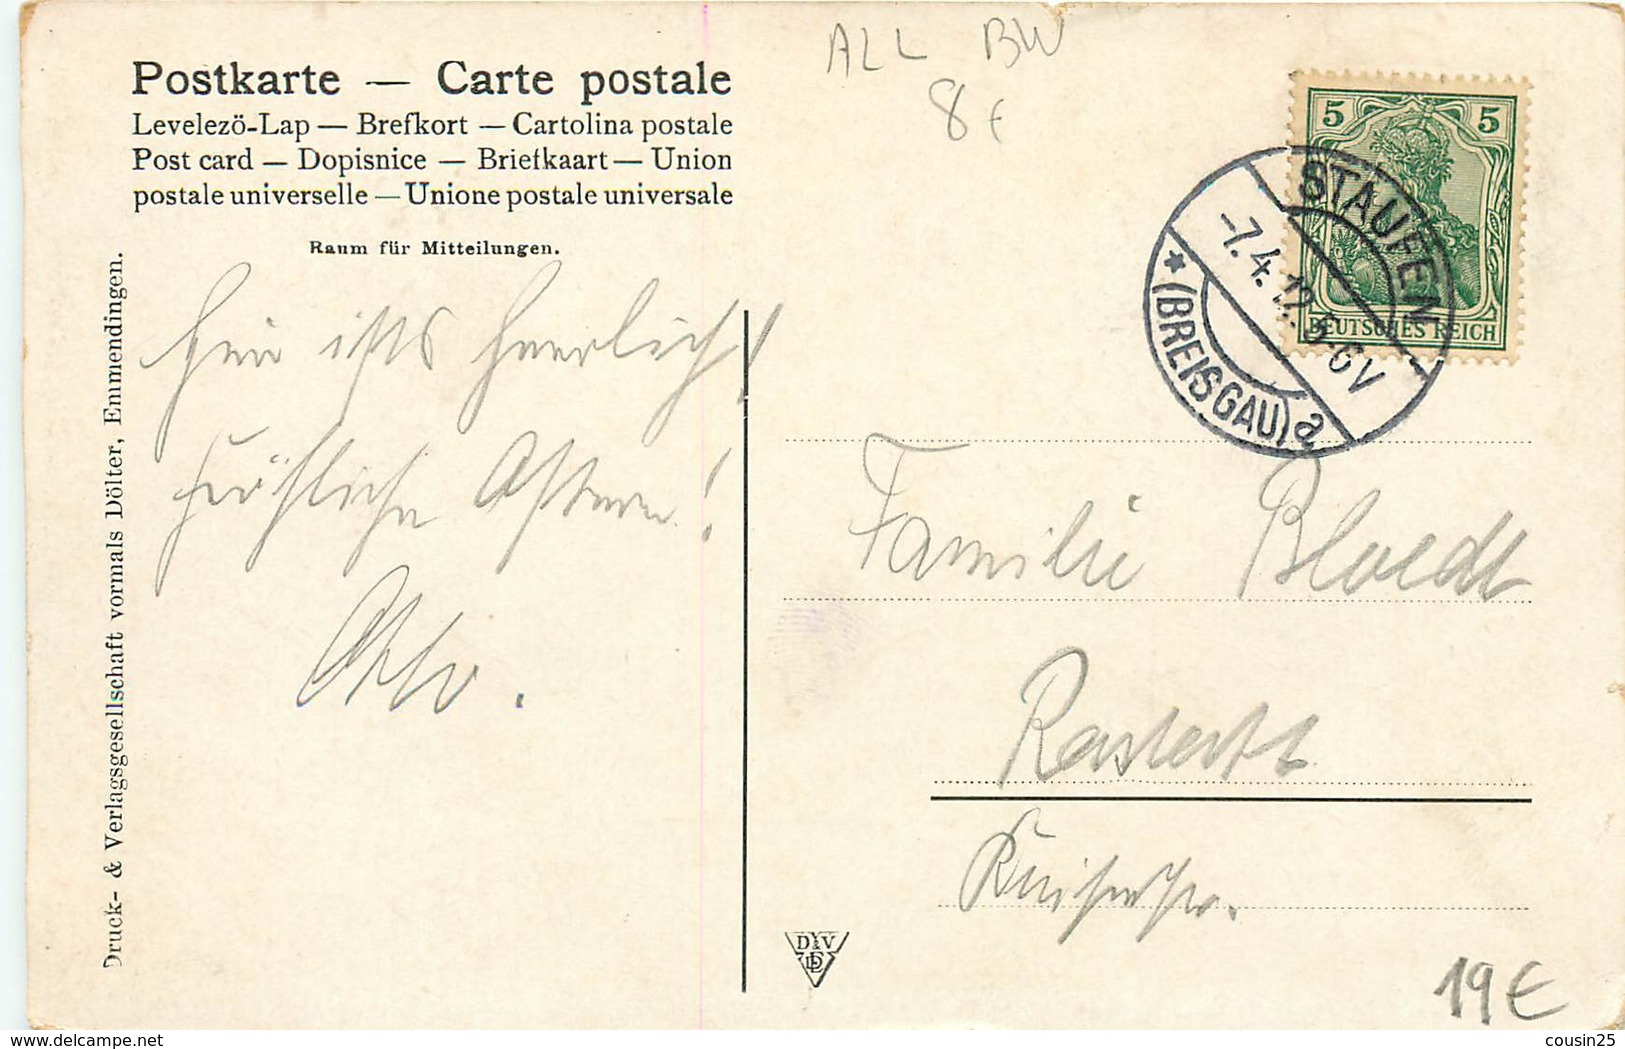 ALL BW
8€
Postkarte — Carte postale
Levelezö-Lap — Brefkort — Cartolina postale
Post card — Dopisnice — Briefkaart — Union
postale universelle — Unione postale universale
Raum für Mitteilungen.
Hier ists herrlich!
Fröhliche Ostern!
Otto.
Druck- & Verlagsgesellschaft vormals Dölter, Emmendingen.
5 5
DEUTSCHES REICH
STAUFEN
-7.4.12. 5-6V
* (BREISGAU) a
Familie Bloedt
Rastatt
D & V
19€
delcampe.net
cousin25